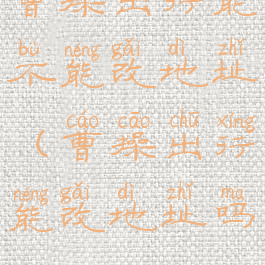 曹操出行能
bù néng gǎi dì zhǐ
不能改地址
cáo cāo chū xíng
(曹操出行
néng gǎi dì zhǐ ma
能改地址吗